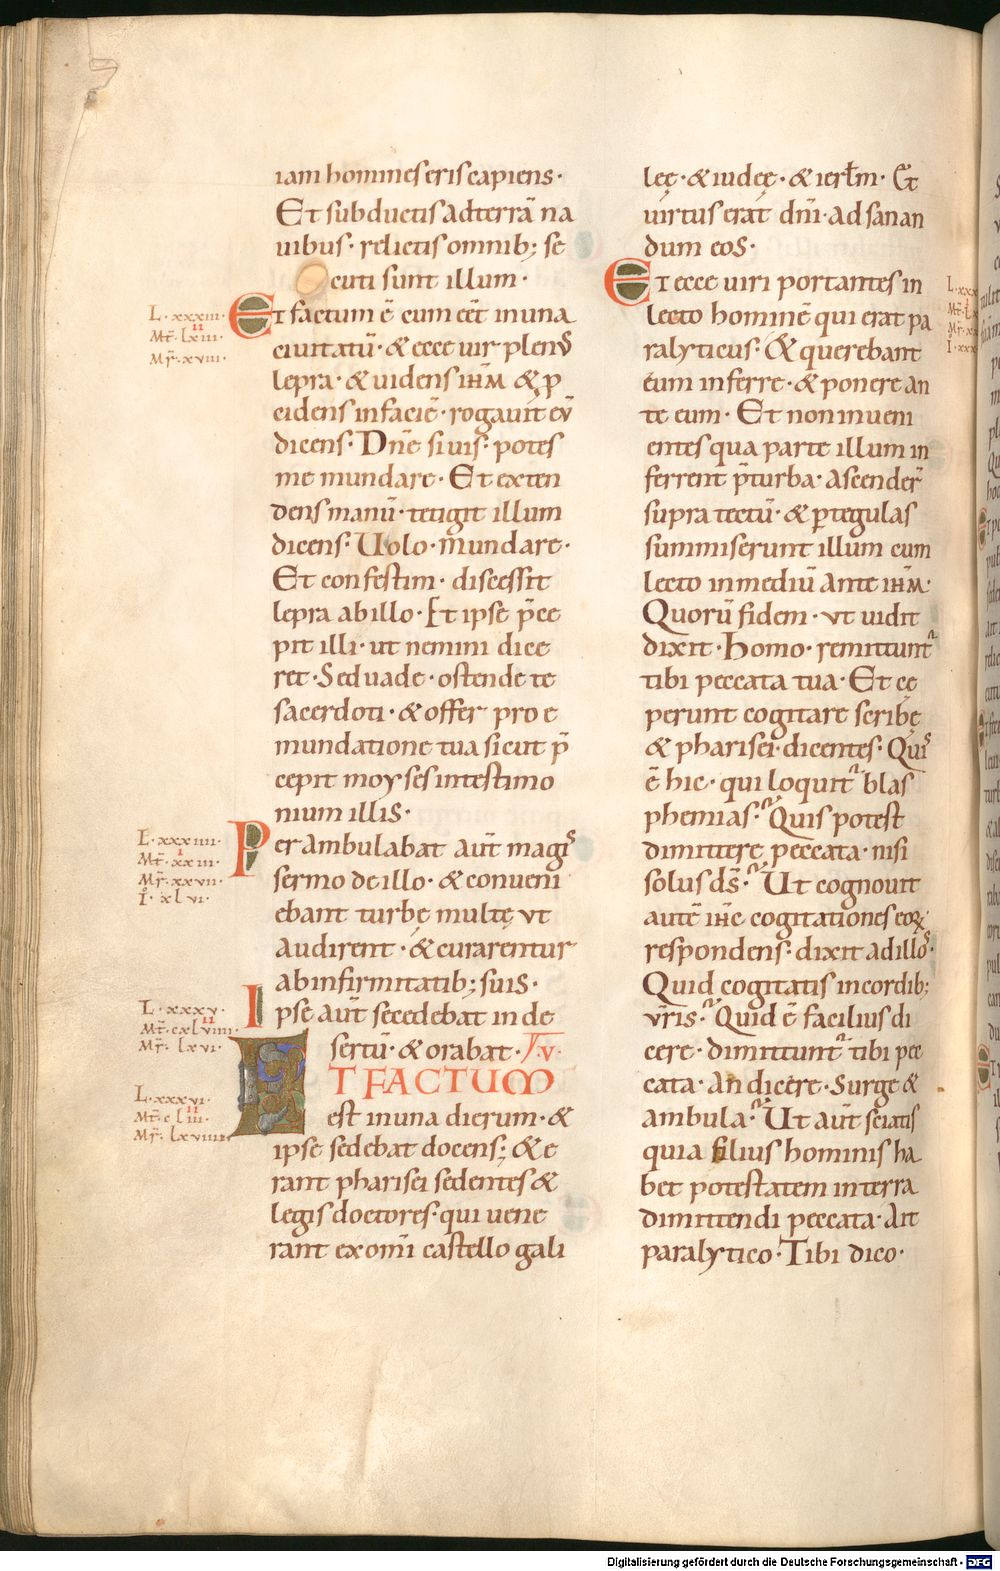 iam homines eris capiens·
Et subductis ad terrā na
uibus· relictis omnib; se
cuti sunt illum·
L·xxxiii·
II
Mt̄·lxiii·
Mr̄·xviii·
Et factum ē cum cēt in una
ciuitatū· & ecce uir plenꝰ
lepra· & uidens ihm̄ & p
cidens in faciē· rogauit eū
dicens· Dn̄e si uis· potes
me mundare· Et exten
dens manū· tetigit illum
dicens· Uolo· mundare·
Et confestim· discessit
lepra ab illo· Et ipse p̄ce
pit illi· ut nemini dice
ret· Sed uade· ostende te
sacerdoti· & offer pro e
mundatione tua sicut p̄
cepit moyses in testimo
nium illis·
L·xxxiiii·
I
Mt̄·xxiii·
Mr̄·xxvii·
I·xlvi·
Perambulabat aut̄ magꝰ
sermo de illo· & conueni
ebant turbę multę vt
audirent· & curarentur
ab infirmitatib; suis·
L·xxxv·
II
Mt̄·cxlviiii·
Mr̄·lxvi·
Ipse aut̄ secedebat in de
sertū· & orabat·
L·xxxvi·
II
Mt̄·cliii·
Mr̄·lxviiii·
ET FACTUM
est in una dierum· &
ipse sedebat docens; & e
rant pharisei sedentes &
legis doctores· qui uene
rant ex om̄i castello gali
leę· & iudeę· & ierłm· Et
uirtus erat dn̄i· ad sanan
dum eos·
Et ecce uiri portantes in
lecto hominē qui erat pa
ralyticus· Et querebant
eum inferre· & ponere an
te eum· Et non inueni
entes qua parte illum in
ferrent p̄ turba· Ascender̄
supra tectū· & ꝑ tegulas
summiserunt illum cum
lecto in mediū ante ihm̄·
Quorū fidem· vt uidit
dixit· Homo· remittunt᷑
tibi peccata tua· Et cę
perunt cogitare scribę
& pharisei· dicentes· Quiſ
ē hic· qui loquit᷑ blas
phemias· Quis potest
dimittere peccata· nisi
solus ds̄· Ut cognouit
autē ihc̄ cogitationes eoꝝ·
respondens· dixit ad illoſ·
Quid cogitatis in cordib;
vr̄is· Quid ē facilius di
cere· dimittunt᷑ tibi pec
cata· an dicere· Surge &
ambula· Ut aut̄ sciatis
quia filius hominis ha
bet potestatem in terra
dimittendi peccata· Ait
paralytico· Tibi dico·
Digitalisierung gefördert durch die Deutsche Forschungsgemeinschaft - DFG